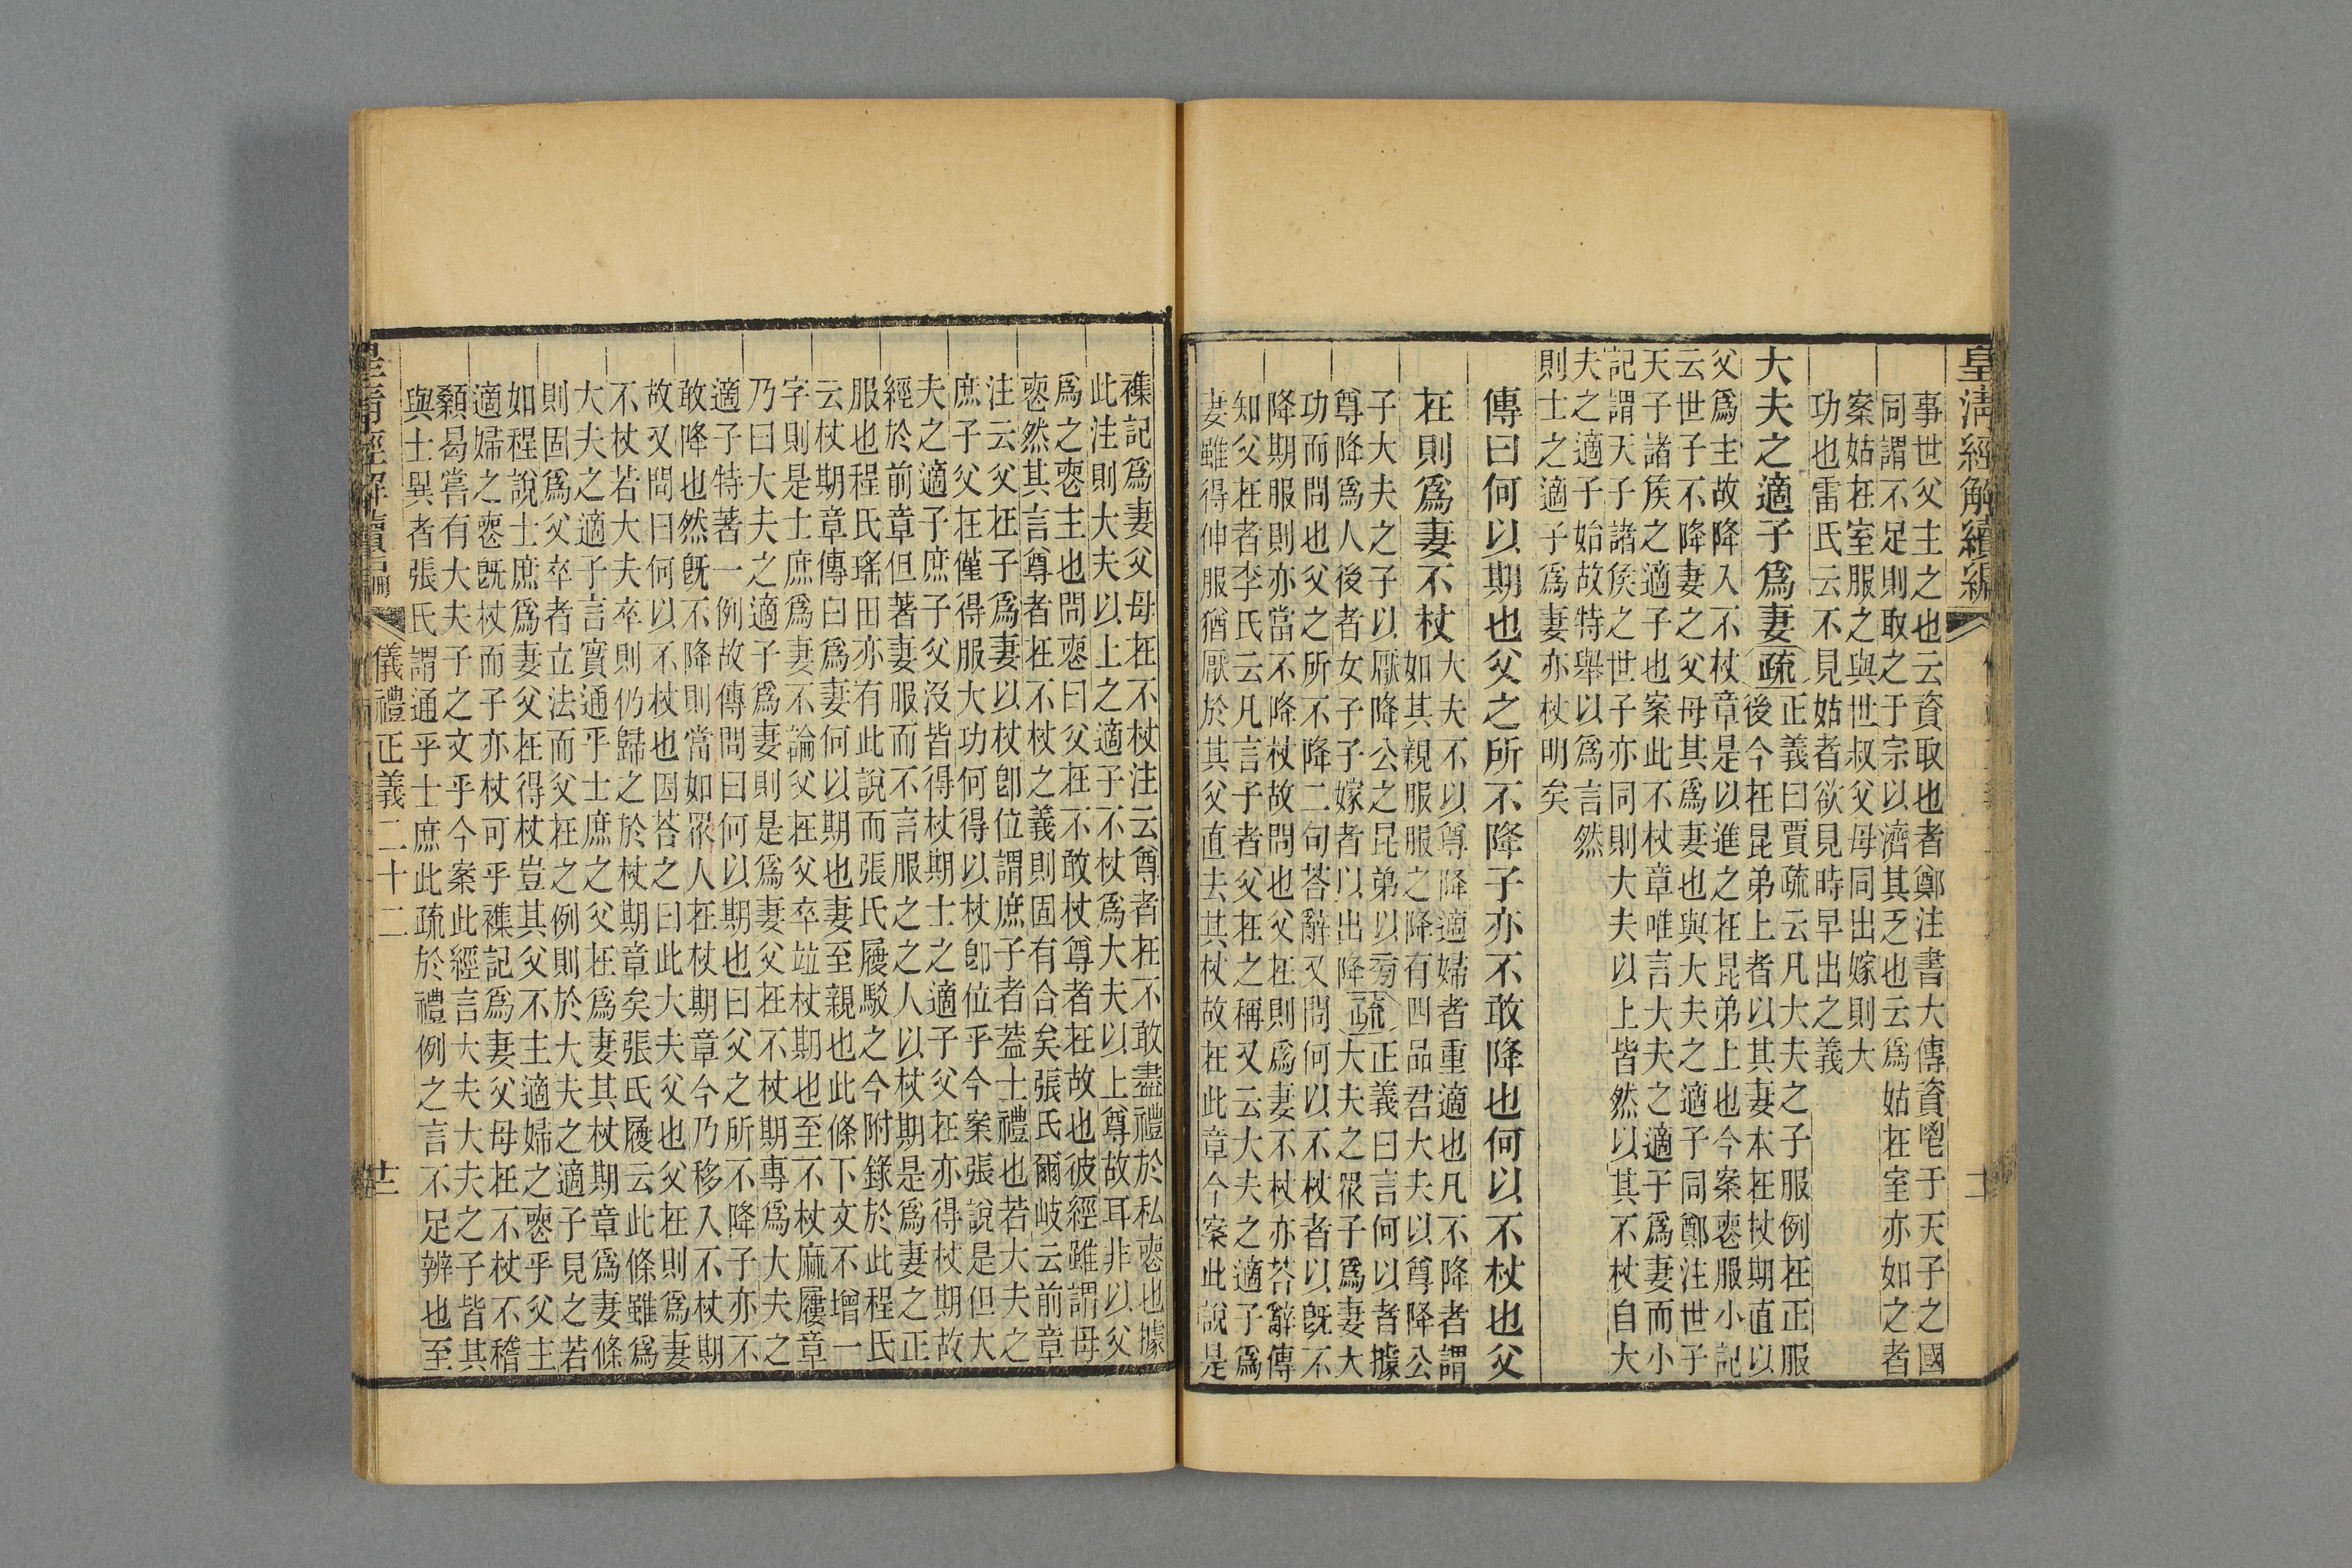 皇清經解續編
事世父主之也云資取也者鄭注書大傳資鬯于天子之國
同謂不足則取之于宗以濟其乏也云爲姑在室亦如之者
案姑在室服之與世叔父母同出嫁則大
功也雷氏云不見姑者欲見時早出之義
大夫之適子爲妻
疏
正義曰賈疏云凡大夫之子服例在正服
後今在昆弟上者以其妻本在杖期直以
父爲主故降入不杖章是以進之在昆弟上也今案喪服小記
云世子不降妻之父母其爲妻也與大夫之適子同鄭注世子
天子諸侯之適子也案此不杖章唯言大夫之適子爲妻而小
記謂天子諸侯之世子亦同則大夫以上皆然以其不杖自大
夫之適子始故特舉以爲言然
則士之適子爲妻亦杖明矣
傳曰何以期也父之所不降子亦不敢降也何以不杖也父
在則爲妻不杖
大夫不以尊降適婦者重適也凡不降者謂
如其親服服之降有四品君大夫以尊降公
子大夫之子以厭降公之昆弟以旁
尊降爲人後者女子子嫁者以出降
疏
正義曰言何以者據
大夫之眾子爲妻大
功而問也父之所不降二句荅辭又問何以不杖者以旣不
降期服則亦當不降杖故問也父在則爲妻不杖亦荅辭傳
知父在者李氏云凡言子者父在之稱又云大夫之適子爲
妻雖得伸服猶厭於其父直去其杖故在此章今案此說是
襍記爲妻父母在不杖注云尊者在不敢盡禮於私喪也據
此注則大夫以上之適子不杖爲大夫以上尊故耳非以父
爲之喪主也問喪曰父在不敢杖尊者在故也彼經雖謂母
喪然其言尊者在不杖之義則固有合矣張氏爾岐云前章
注云父在子爲妻以杖卽位謂庶子者蓋士禮也若大夫之
庶子父在僅得服大功何得以杖卽位乎今案張說是但大
夫之適子庶子父沒皆得杖期士之適子父在亦得杖期故
經於前章但著妻服而不言服之之人以杖期是爲妻之正
服也程氏瑤田亦有此說而張氏履駁之今附錄於此程氏
云杖期章傳曰爲妻何以期也妻至親也此條下文不增一
字則是士庶爲妻不論父在父卒竝杖期也至不杖麻屨章
乃曰大夫之適子爲妻則是爲妻父在不杖期專爲大夫之
適子特著一例故傳問曰何以期也曰父之所不降子亦不
敢降也然旣不降則當如眾人在杖期章今乃移入不杖期
故又問曰何以不杖也因荅之曰此大夫父也父在則爲妻
不杖若大夫卒則仍歸之於杖期章矣張氏履云此條雖爲
大夫之適子言實通乎士庶之父在爲妻其杖期章爲妻條
則固爲父卒者立法而父在之例則於大夫之適子見之若
如程說士庶爲妻父在得杖豈其父不主適婦之喪乎父主
適婦之喪旣杖而子亦杖可乎襍記爲妻父母在不杖不稽
顙曷嘗有大夫子之文乎今案此經言大夫大夫之子皆其
與士異者張氏謂通乎士庶此疏於禮例之言不足辨也至
儀禮正義二十二